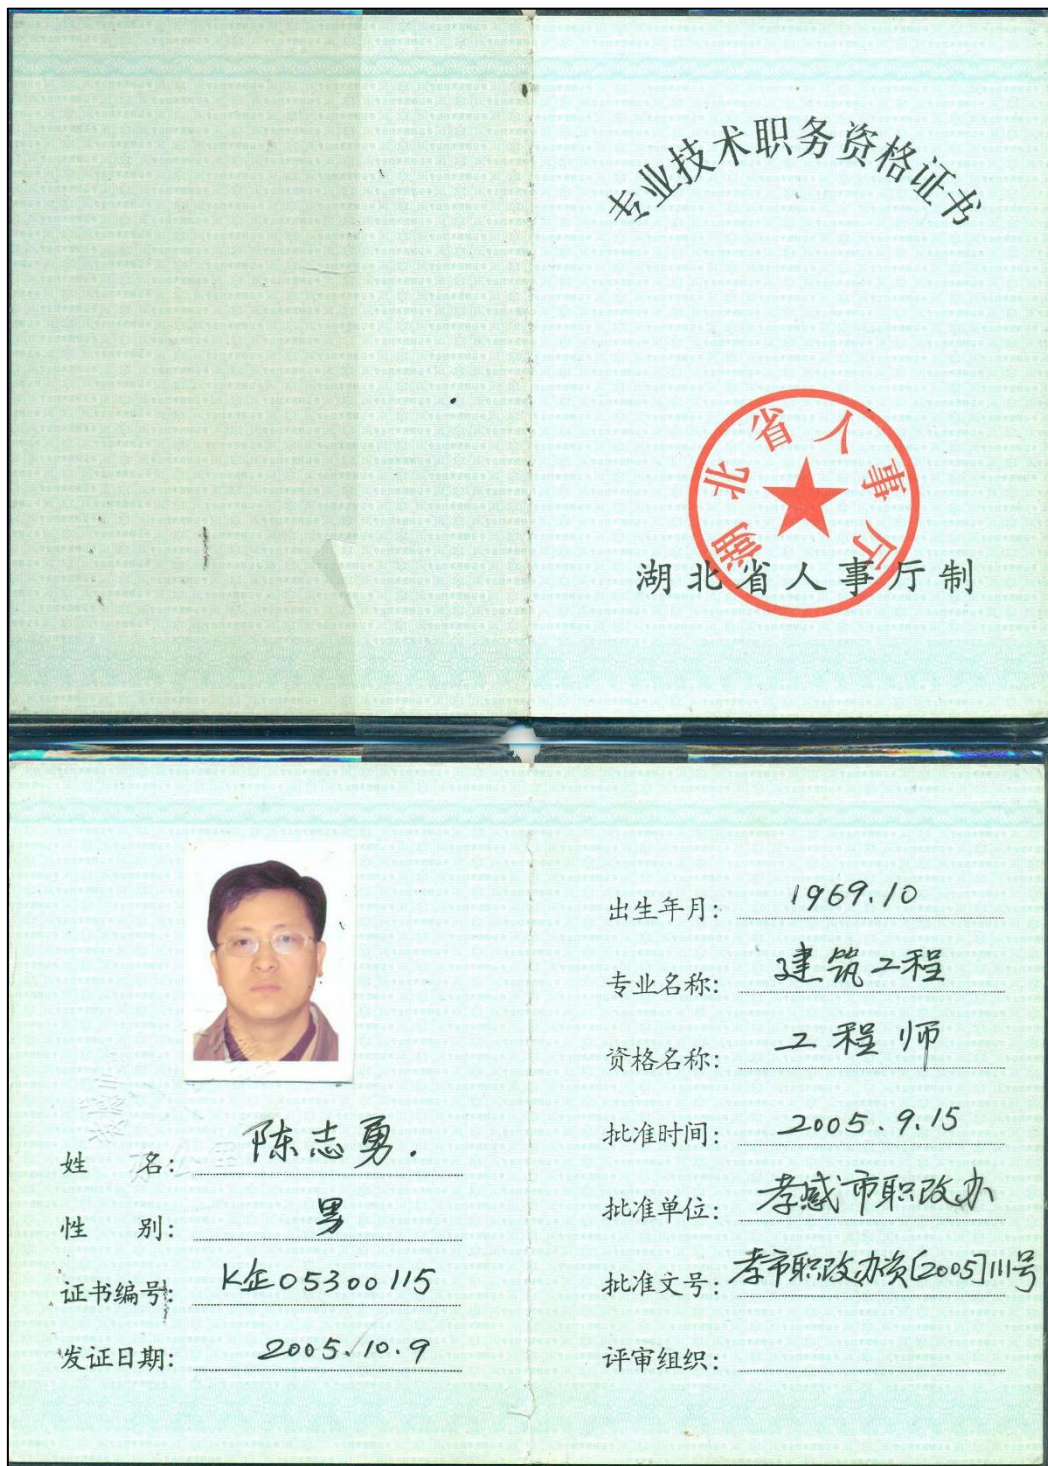 专业技术职务资格证书
湖北省人事厅
湖北省人事厅制
姓 名: 陈志勇.
性 别: 男
证书编号: K企05300115
发证日期: 2005.10.9
出生年月: 1969.10
专业名称: 建筑工程
资格名称: 工程师
批准时间: 2005.9.15
批准单位: 孝感市职改办
批准文号: 孝市职改办资[2005]111号
评审组织: